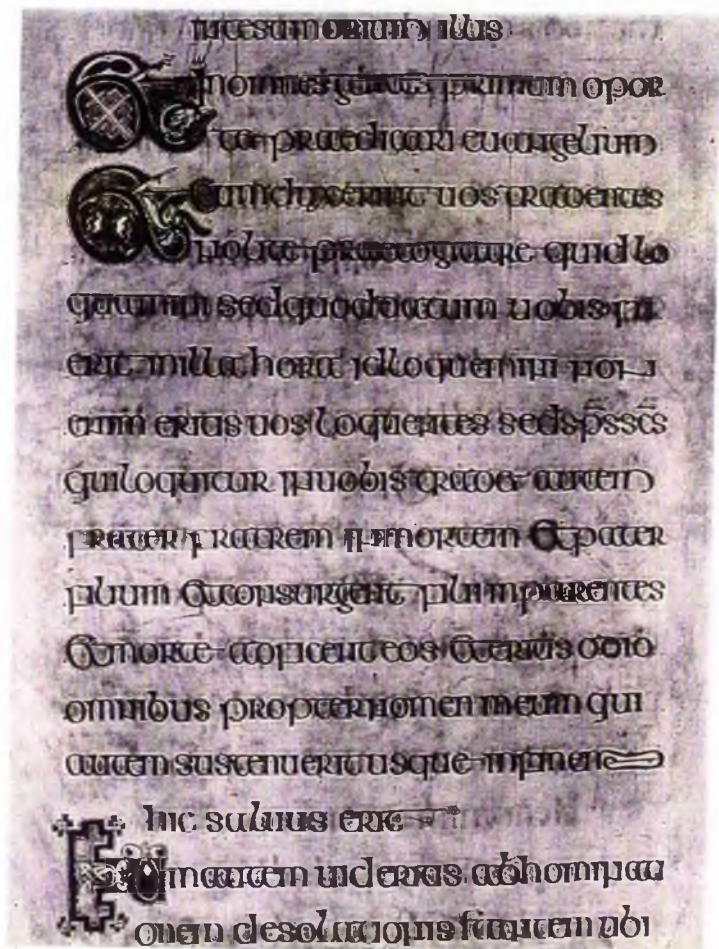 illis
Et in omnes gentes primum opor
tet praedicari euangelium
Et cum duxerint uos tradentes
nolite praecogitare quid lo
quamini sed quod datum uobis fu
erit in illa hora id loquemini non
enim eritis uos loquentes sed sps scs
qui loquitur in uobis tradet autem
frater fratrem in mortem Et pater
filium Et consurgent filii in parentes
Et morte adficient eos Et eritis odio
omnibus propter nomen meum qui
autem sustenuerit usque in finem
hic saluus erit
Cum autem uideritis abhominati
onem desolationis stantem ubi